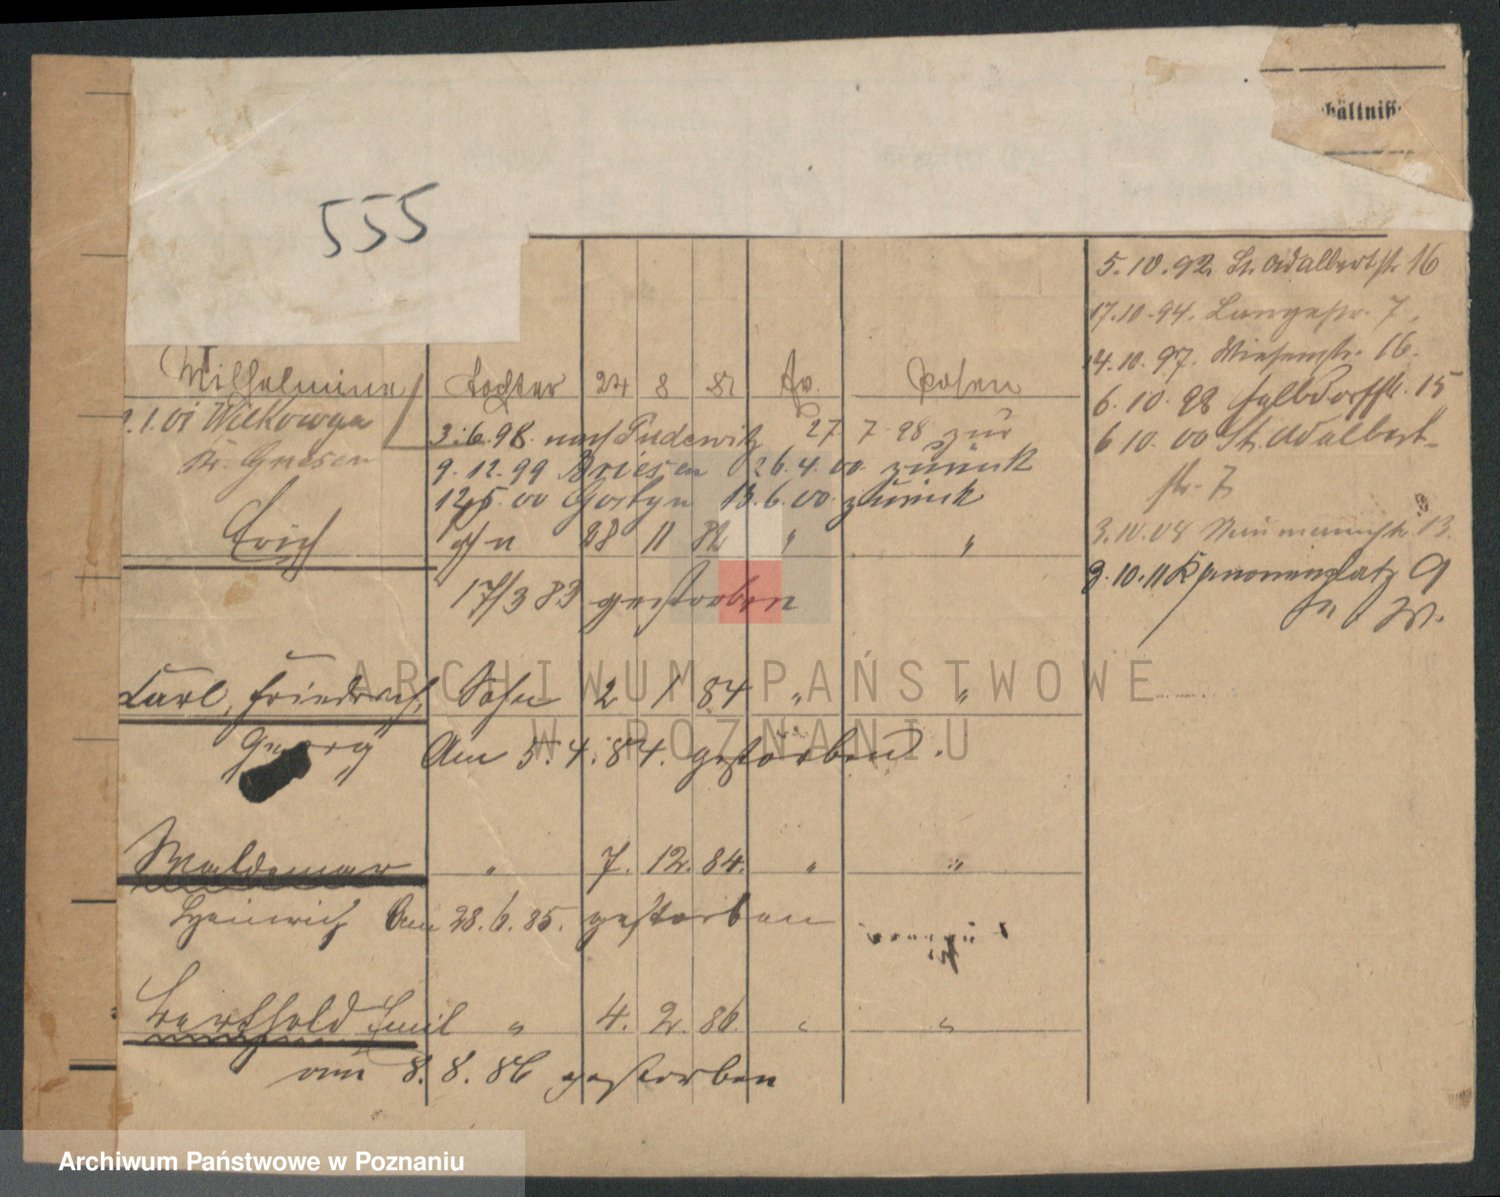 hältniss
555
5.10.92. St. Adalbertstr. 16
17.10.94. Langestr. 7.
14.10.97. Wiesenstr. 16.
6.10.98 Halbdorfstr. 15
6 10. 00 St. Adalbert-
str. 7.
3.10.08 Naumannstr. 13.
9.10.11 Kanonenplatz 9
Wilhelmine Tochter 24 8 81 Ev. Posen
9.1.01 Wilkowya
Kr. Gnesen
3.6.98. nach Pudewitz 27 7 98 zur
9.12.99 Briesen 26.4.00. zurück
12.5.00 Gostyn 13.6.00. zurück
Erich Sohn 28 11 82 " "
17/3 83 gestorben
Carl, Friedrich, Sohn 2 1 84 " "
Georg Am 5.4.84. gestorben.
Waldemar " 7. 12. 84. " "
Heinrich Am 28.6.85. gestorben
Berthold Emil " 4. 2. 86. " "
am 8.8.86 gestorben
ARCHIWUM PAŃSTWOWE
W POZNANIU
Archiwum Państwowe w Poznaniu